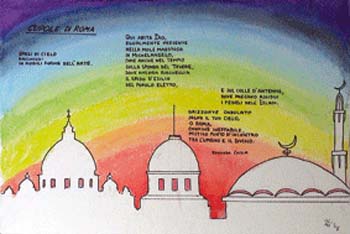 CUPOLE DI ROMA
SPAZI DI CIELO
RACCHIUSI
IN NOBILI FORME DELL'ARTE.
QUI ABITA DIO,
EGUALMENTE PRESENTE
NELLA MOLE MAESTOSA
DI MICHELANGELO,
COME ANCHE NEL TEMPIO
SULLA SPONDA DEL TEVERE,
DOVE ANCORA RIECHEGGIA
IL GRIDO D'ESILIO
DEL POPOLO ELETTO,
E SUL COLLE D'ANTENNE,
DOVE PREGANO ASSIDUI
I FEDELI NELL'ISLAM.
ORIZZONTE ONDULATO
SOPRA IL TUO CIELO,
O ROMA,
CONFINE INEFFABILE,
MISTICO PUNTO D'INCONTRO
TRA L'UMANO E IL DIVINO.